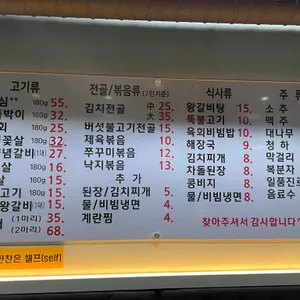 고기류
심++ 180g 55.
박이 180g 32.
회 180g 25.
꽃살 180g 32.
념갈비(1대) 27.
살 180g
살 180g 16.
고기 180g 15.
왕갈비(1대) 15.
(1마리) 35.
(2마리) 68.
반찬은 셀프(self)
전골/볶음류 (2인기준)
김치전골 中 25.
大 35.
버섯불고기전골 15.
제육볶음 10.
쭈꾸미볶음 12.
낙지볶음 13.
추 가
된장/김치찌개 5.
물/비빔냉면 4.
계란찜 4.
식사류
왕갈비탕 15.
뚝불고기 10.
육회비빔밥 10.
해장국 9.
김치찌개 8.
차돌된장 8.
콩비지 8.
물/비빔냉면 8.
주
소 주
맥 주
대나무
청 하
막걸리
복분자
일품진
음료수
찾아주셔서 감사합니다